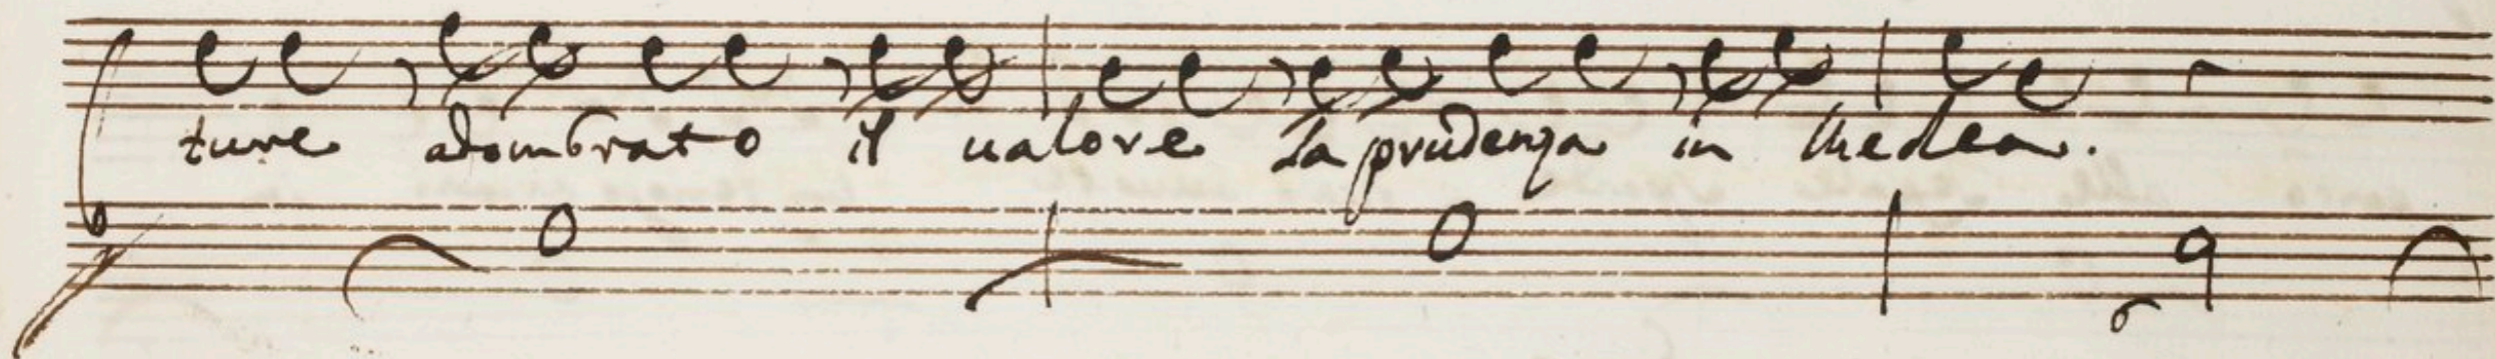 ture adombrato il ualore La prudenza in Medea.
6